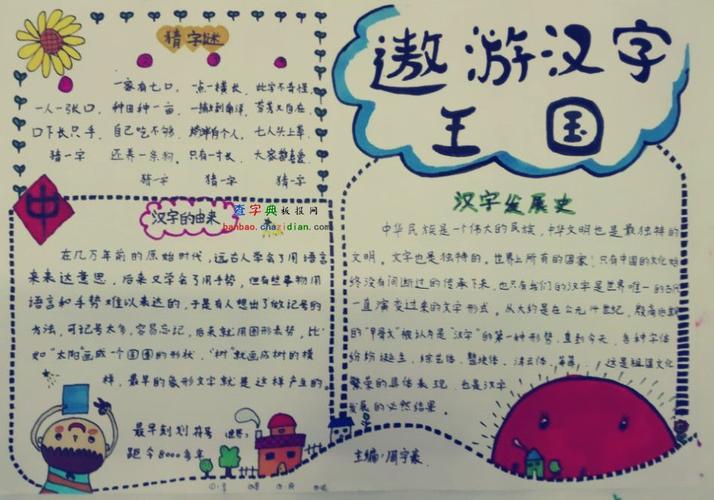 遨游汉字
王国
猜字谜
一人一张口,
口下长只手,
猜一字
一家有七口,
种田种一亩,
自己吃不够,
还养一条狗,
猜字
一点一横长,
只有一寸长,
猜一字
此字不奇怪,
又自在,
七人头上草,
大家都喜爱,
猜一字
中
汉字的由来
查字典板报网
banbao.chazidian.com
在几万年前的原始时代,远古人学会了用语言
来表达意思,后来又学会了用手势,但有些事物用
语言和手势难以表达的,于是有人想出了做记号的
方法,可记号太多,容易忘记,后来就用图形表势,比
如“太阳”画成一个圆圆的形状,“树”就画成树的模
样,最早的象形文字就是这样产生的。
最早刻划符号
距今8000多年
汉字发展史
中华民族是一个伟大的民族,中华文明也是最独特的
文明。文字也是独特的。世界上所有的国家,只有中国的文化始
终没有间断过的传承下来,也只有我们的汉字是世界唯一的古
一直演变过来的文字形式。从大约是在公元前世纪,殷商
的“甲骨文”被认为是“汉字”的第一种形势,直到今天,各种字体
纷纷诞生,综艺体、整块体、等等,这是祖国文化
繁荣的具体表现,也是汉字
发展的必然结果。
主编:周宇豪